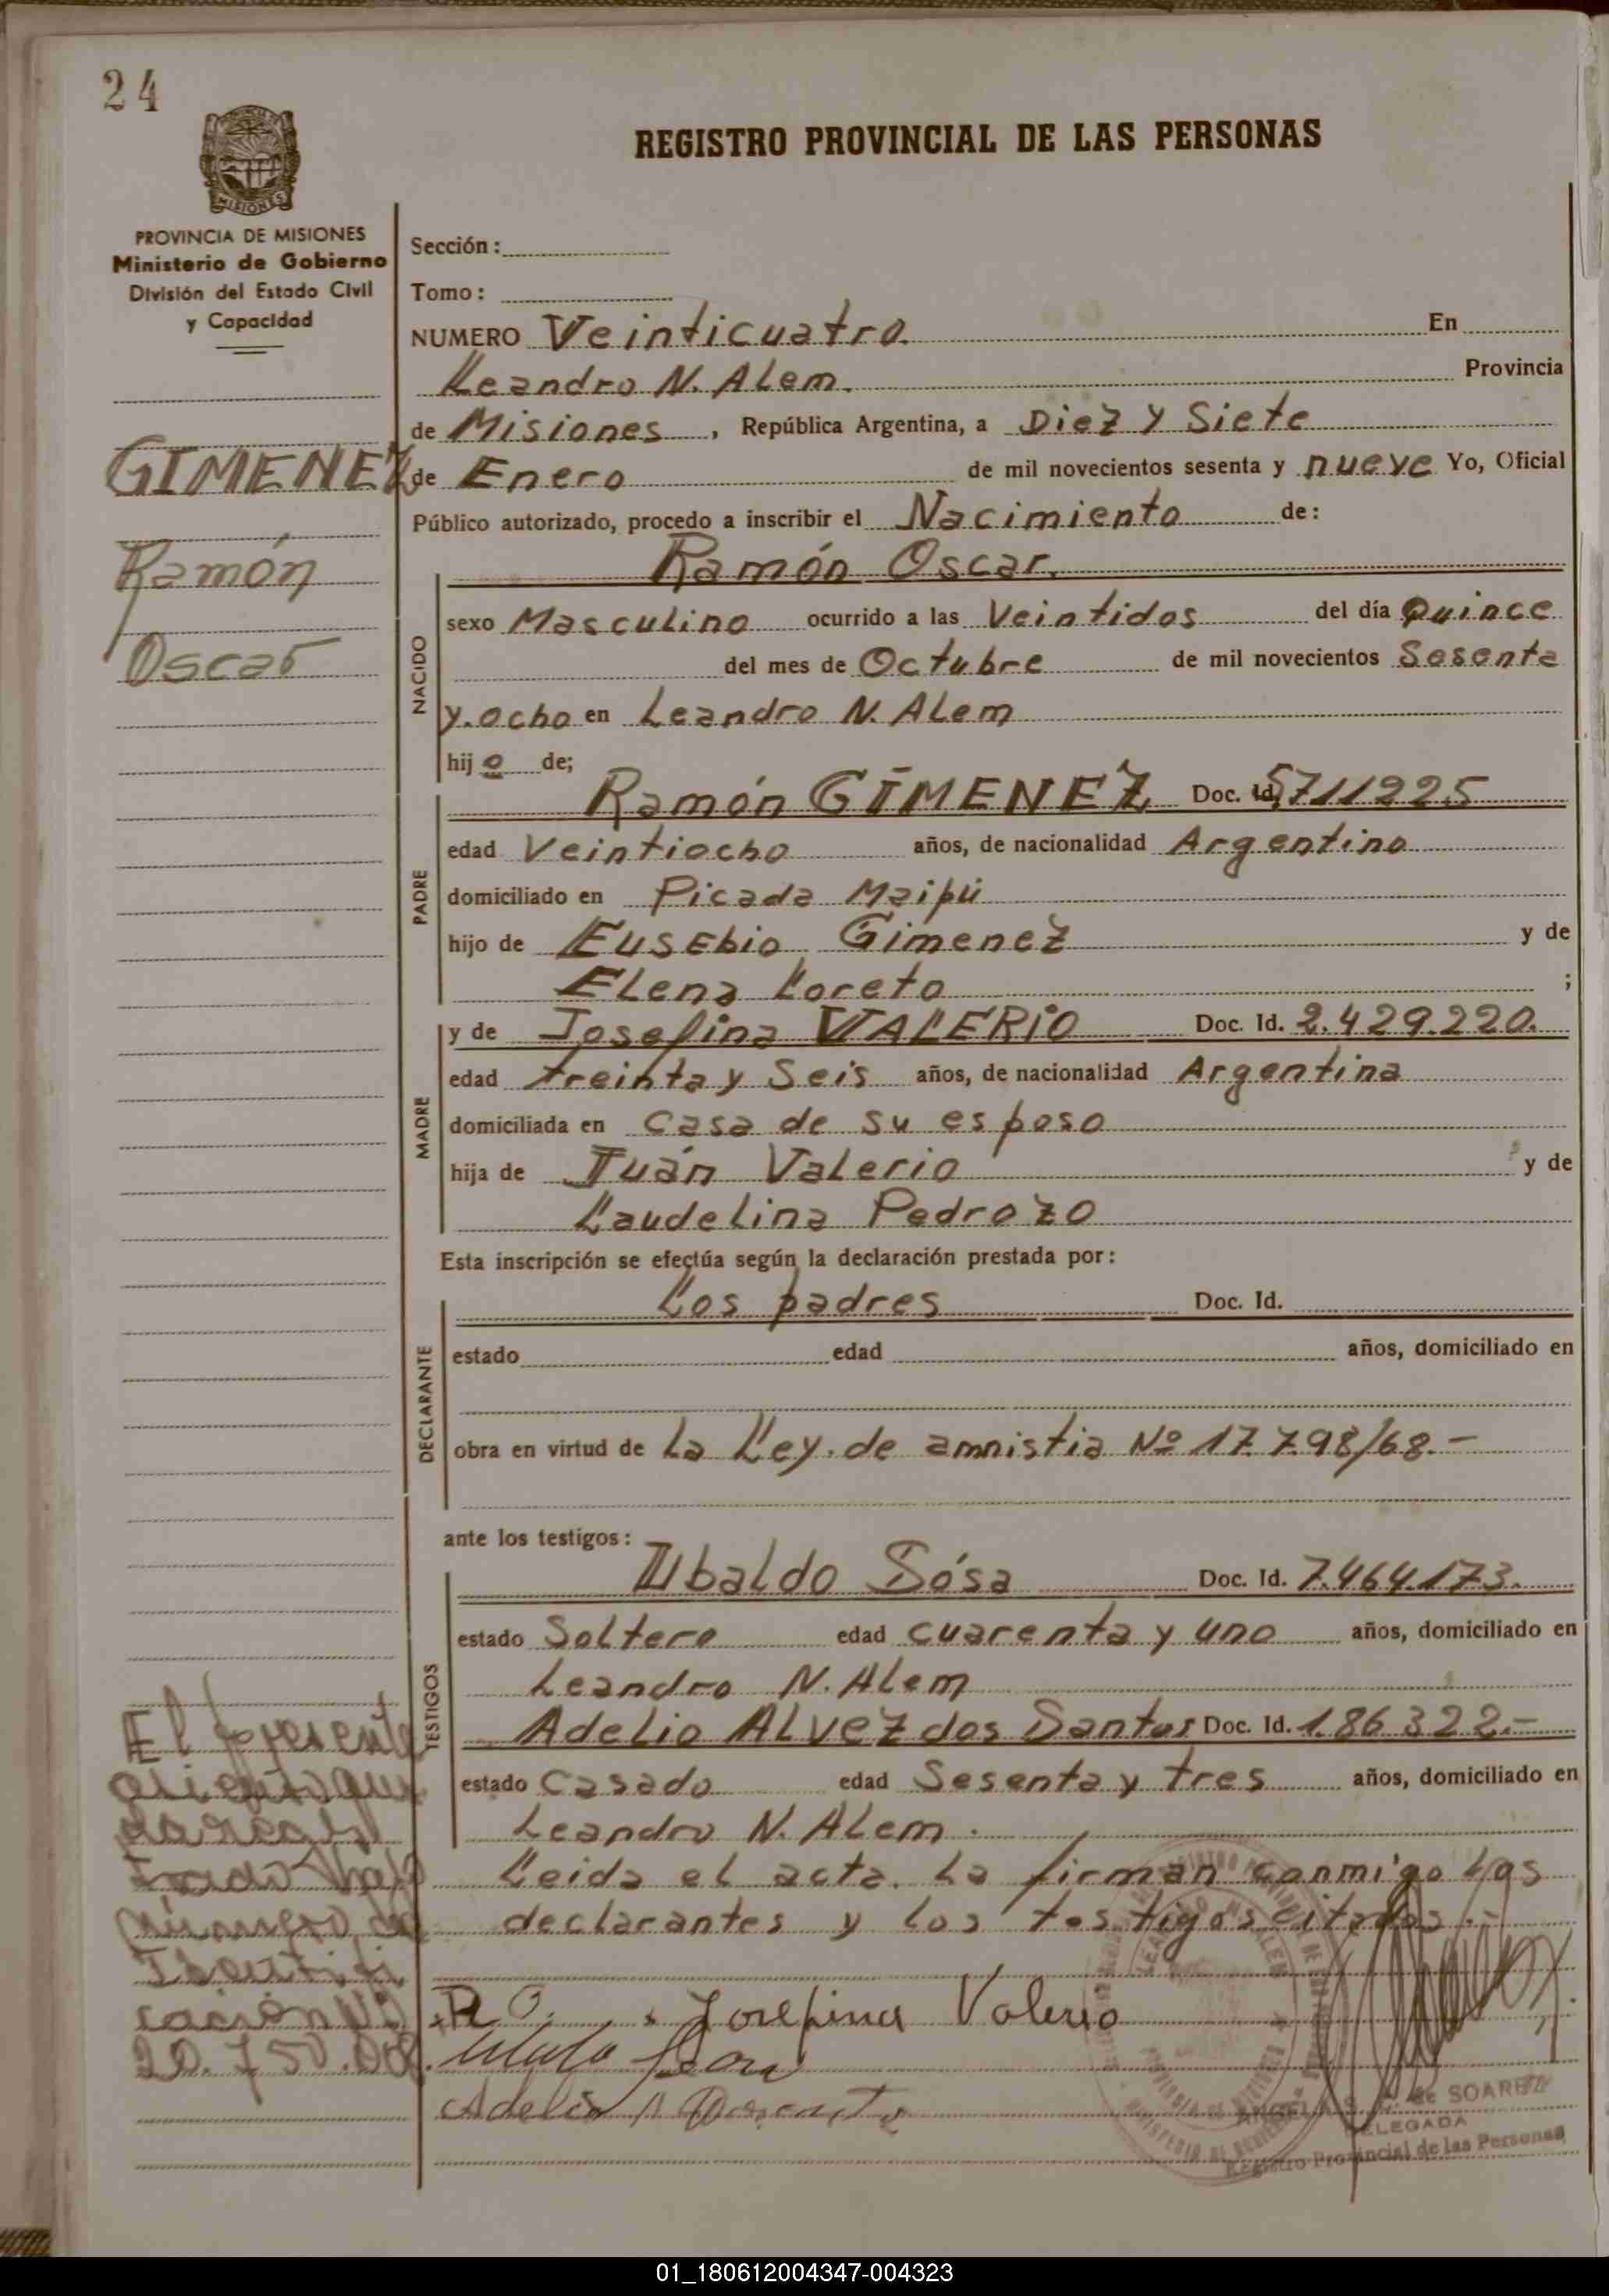 24
MISIONES
PROVINCIA DE MISIONES
Ministerio de Gobierno
División del Estado Civil
y Capacidad
REGISTRO PROVINCIAL DE LAS PERSONAS
Sección:
Tomo:
NUMERO Veinticuatro. En
Leandro N. Alem. Provincia
de Misiones, República Argentina, a Diez y Siete
de Enero de mil novecientos sesenta y nueve Yo, Oficial
Público autorizado, procedo a inscribir el Nacimiento de:
GIMENEZ
Ramón
Oscar
Ramón Oscar.
NACIDO
sexo Masculino ocurrido a las Veintidos del día Quince
del mes de Octubre de mil novecientos Sesenta
y ocho en Leandro N. Alem
hijo de;
PADRE
Ramón GIMENEZ Doc. Id. 5711225
edad Veintiocho años, de nacionalidad Argentino
domiciliado en Picada Maipú
hijo de Eusebio Gimenez y de
Elena Loreto ;
MADRE
y de Josefina VALERIO Doc. Id. 2.429.220.
edad treinta y Seis años, de nacionalidad Argentina
domiciliada en Casa de su esposo
hija de Juán Valerio y de
Laudelina Pedrozo
Esta inscripción se efectúa según la declaración prestada por:
DECLARANTE
Los padres Doc. Id.
estado edad años, domiciliado en
obra en virtud de La Ley de amnistia Nº 17.798/68.-
ante los testigos:
TESTIGOS
Ubaldo Sósa Doc. Id. 7.464.173.
estado Soltero edad cuarenta y uno años, domiciliado en
Leandro N. Alem
Adelio ALvez dos Santos Doc. Id. 186322.-
estado Casado edad Sesenta y tres años, domiciliado en
Leandro N. Alem.
Leida el acta. La firman conmigo Los
declarantes y los testigos citados.-
El presente
número de
Identifi
cación Nº
20.750.008.
Josefina Valerio
de SOAREZ
DELEGADA
Registro Provincial de las Personas
01_180612004347-004323